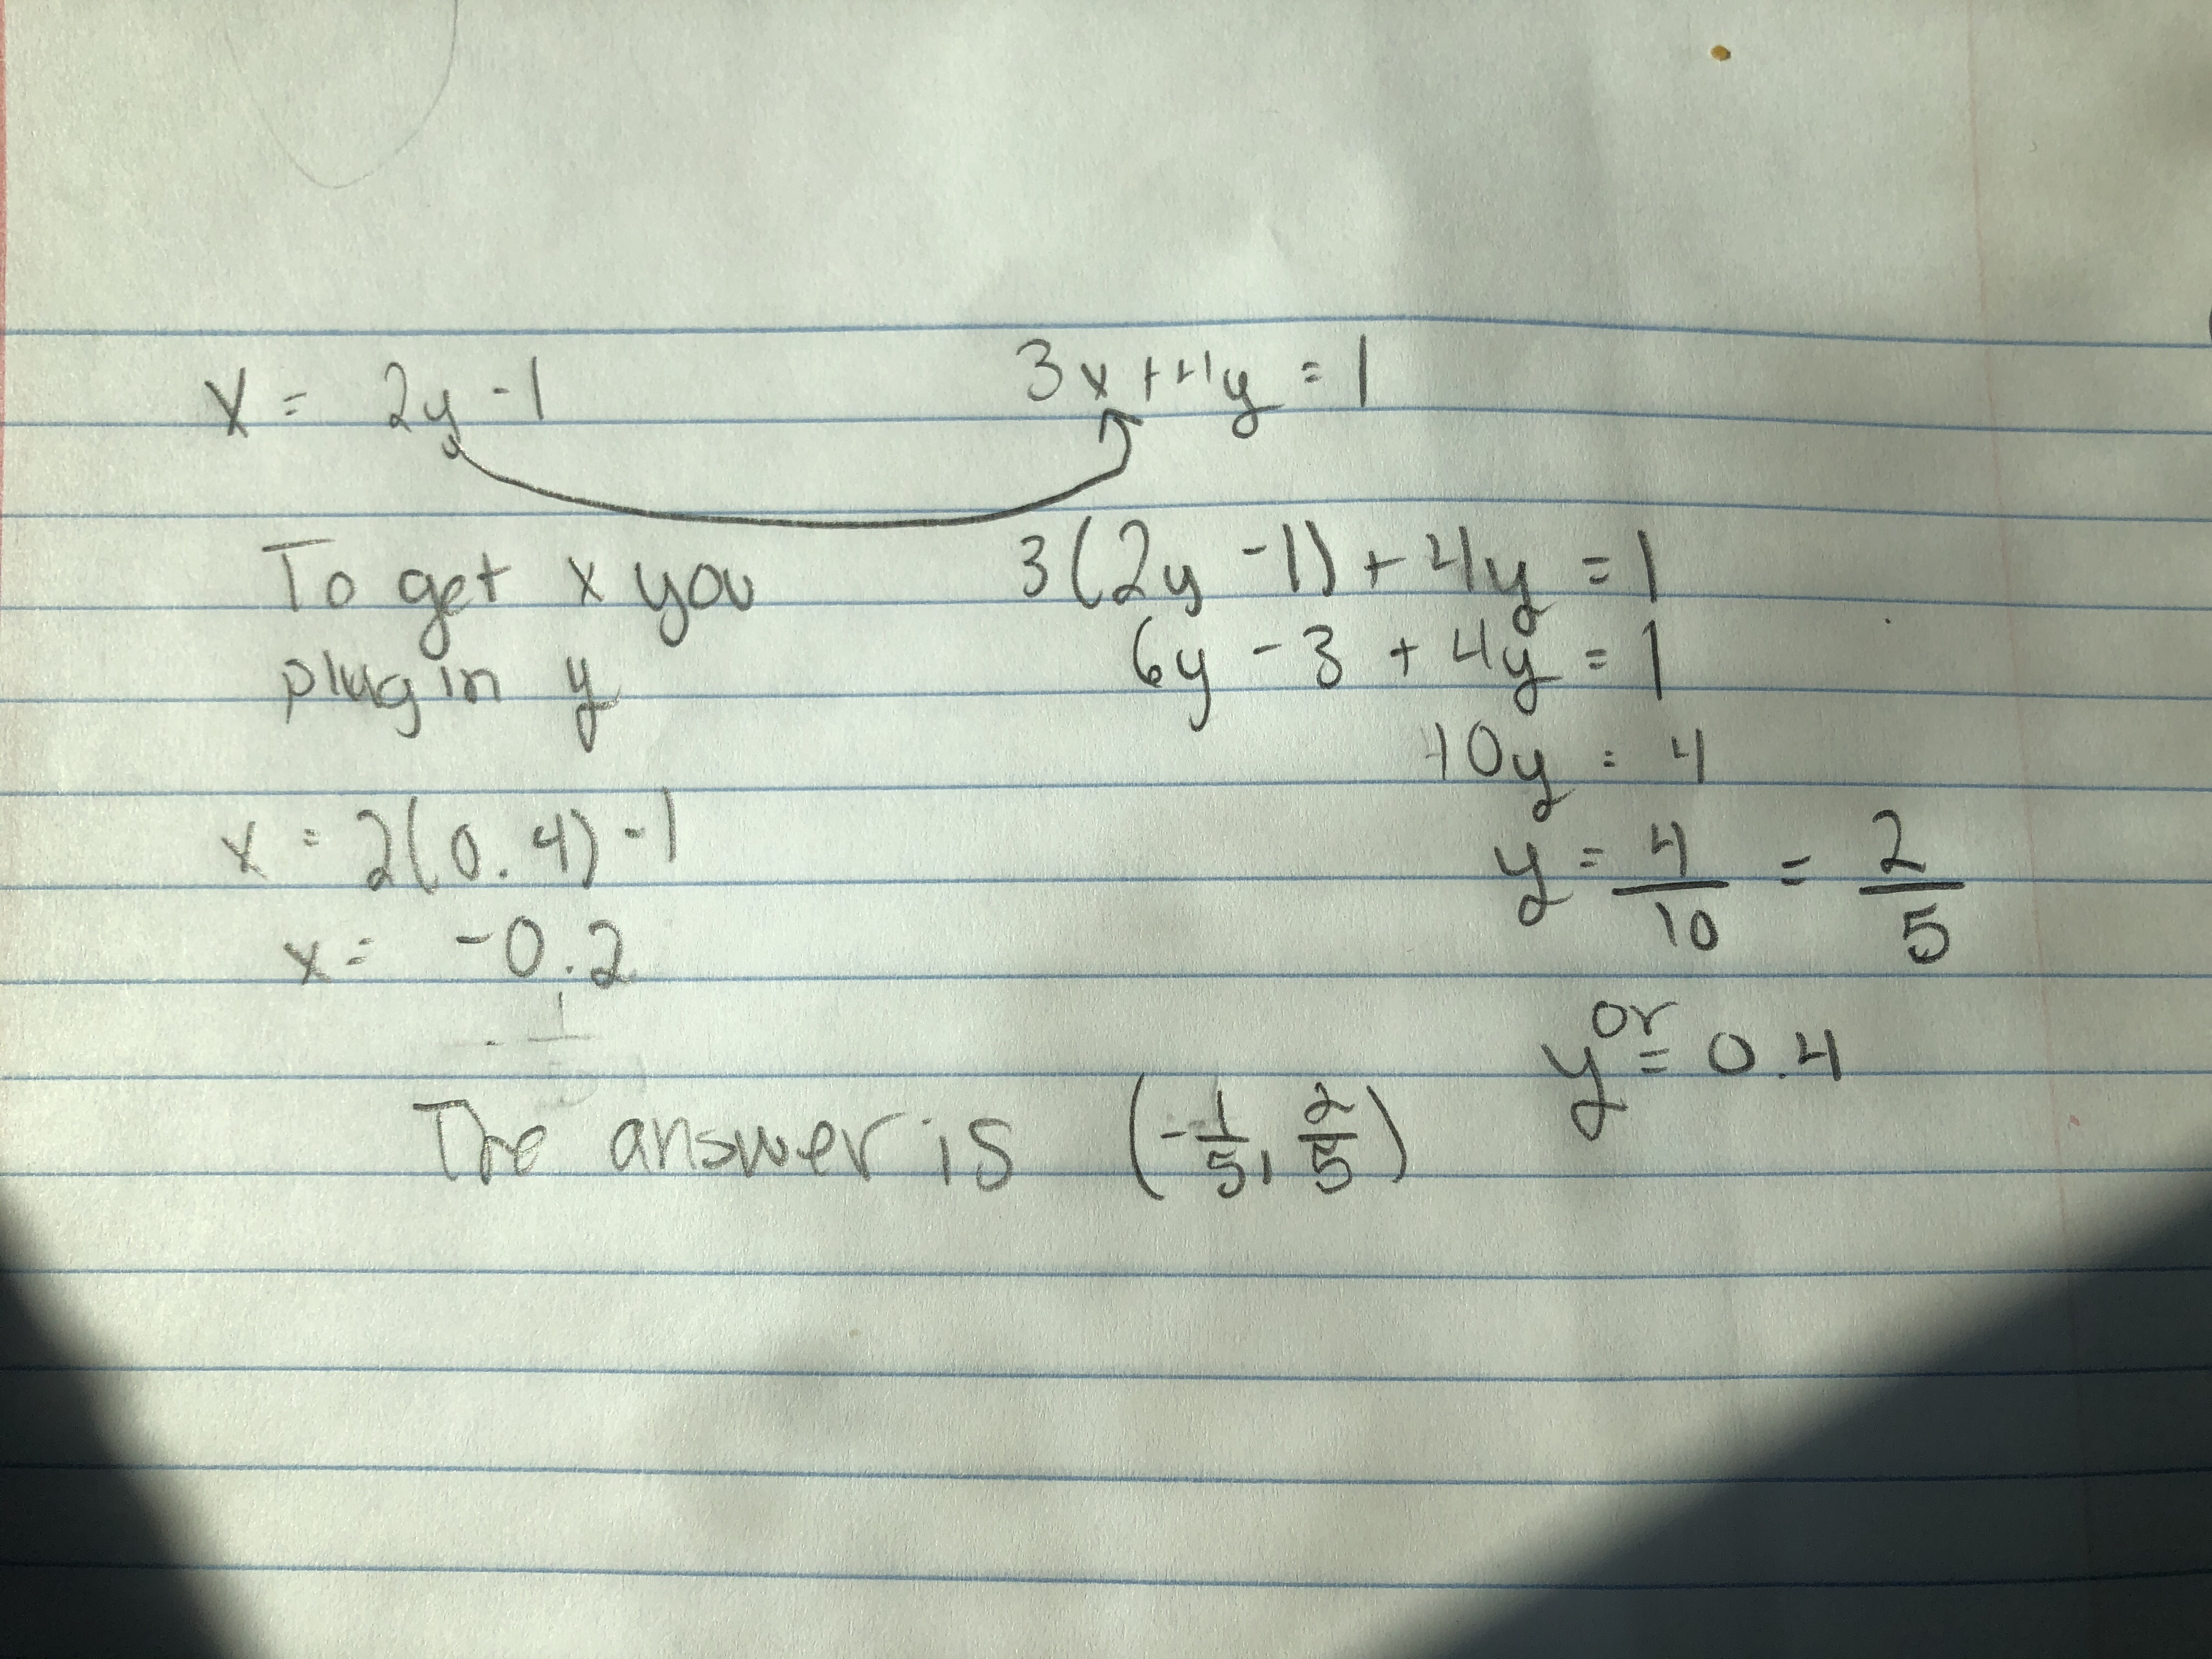 x = 2y - 1
3x + 4y = 1
To get x you
plug in y
x = 2(0.4) - 1
x = -0.2
3(2y - 1) + 4y = 1
6y - 3 + 4y = 1
10y = 4
y = 4/10 = 2/5
or
y = 0.4
The answer is (-1/5, 2/5)